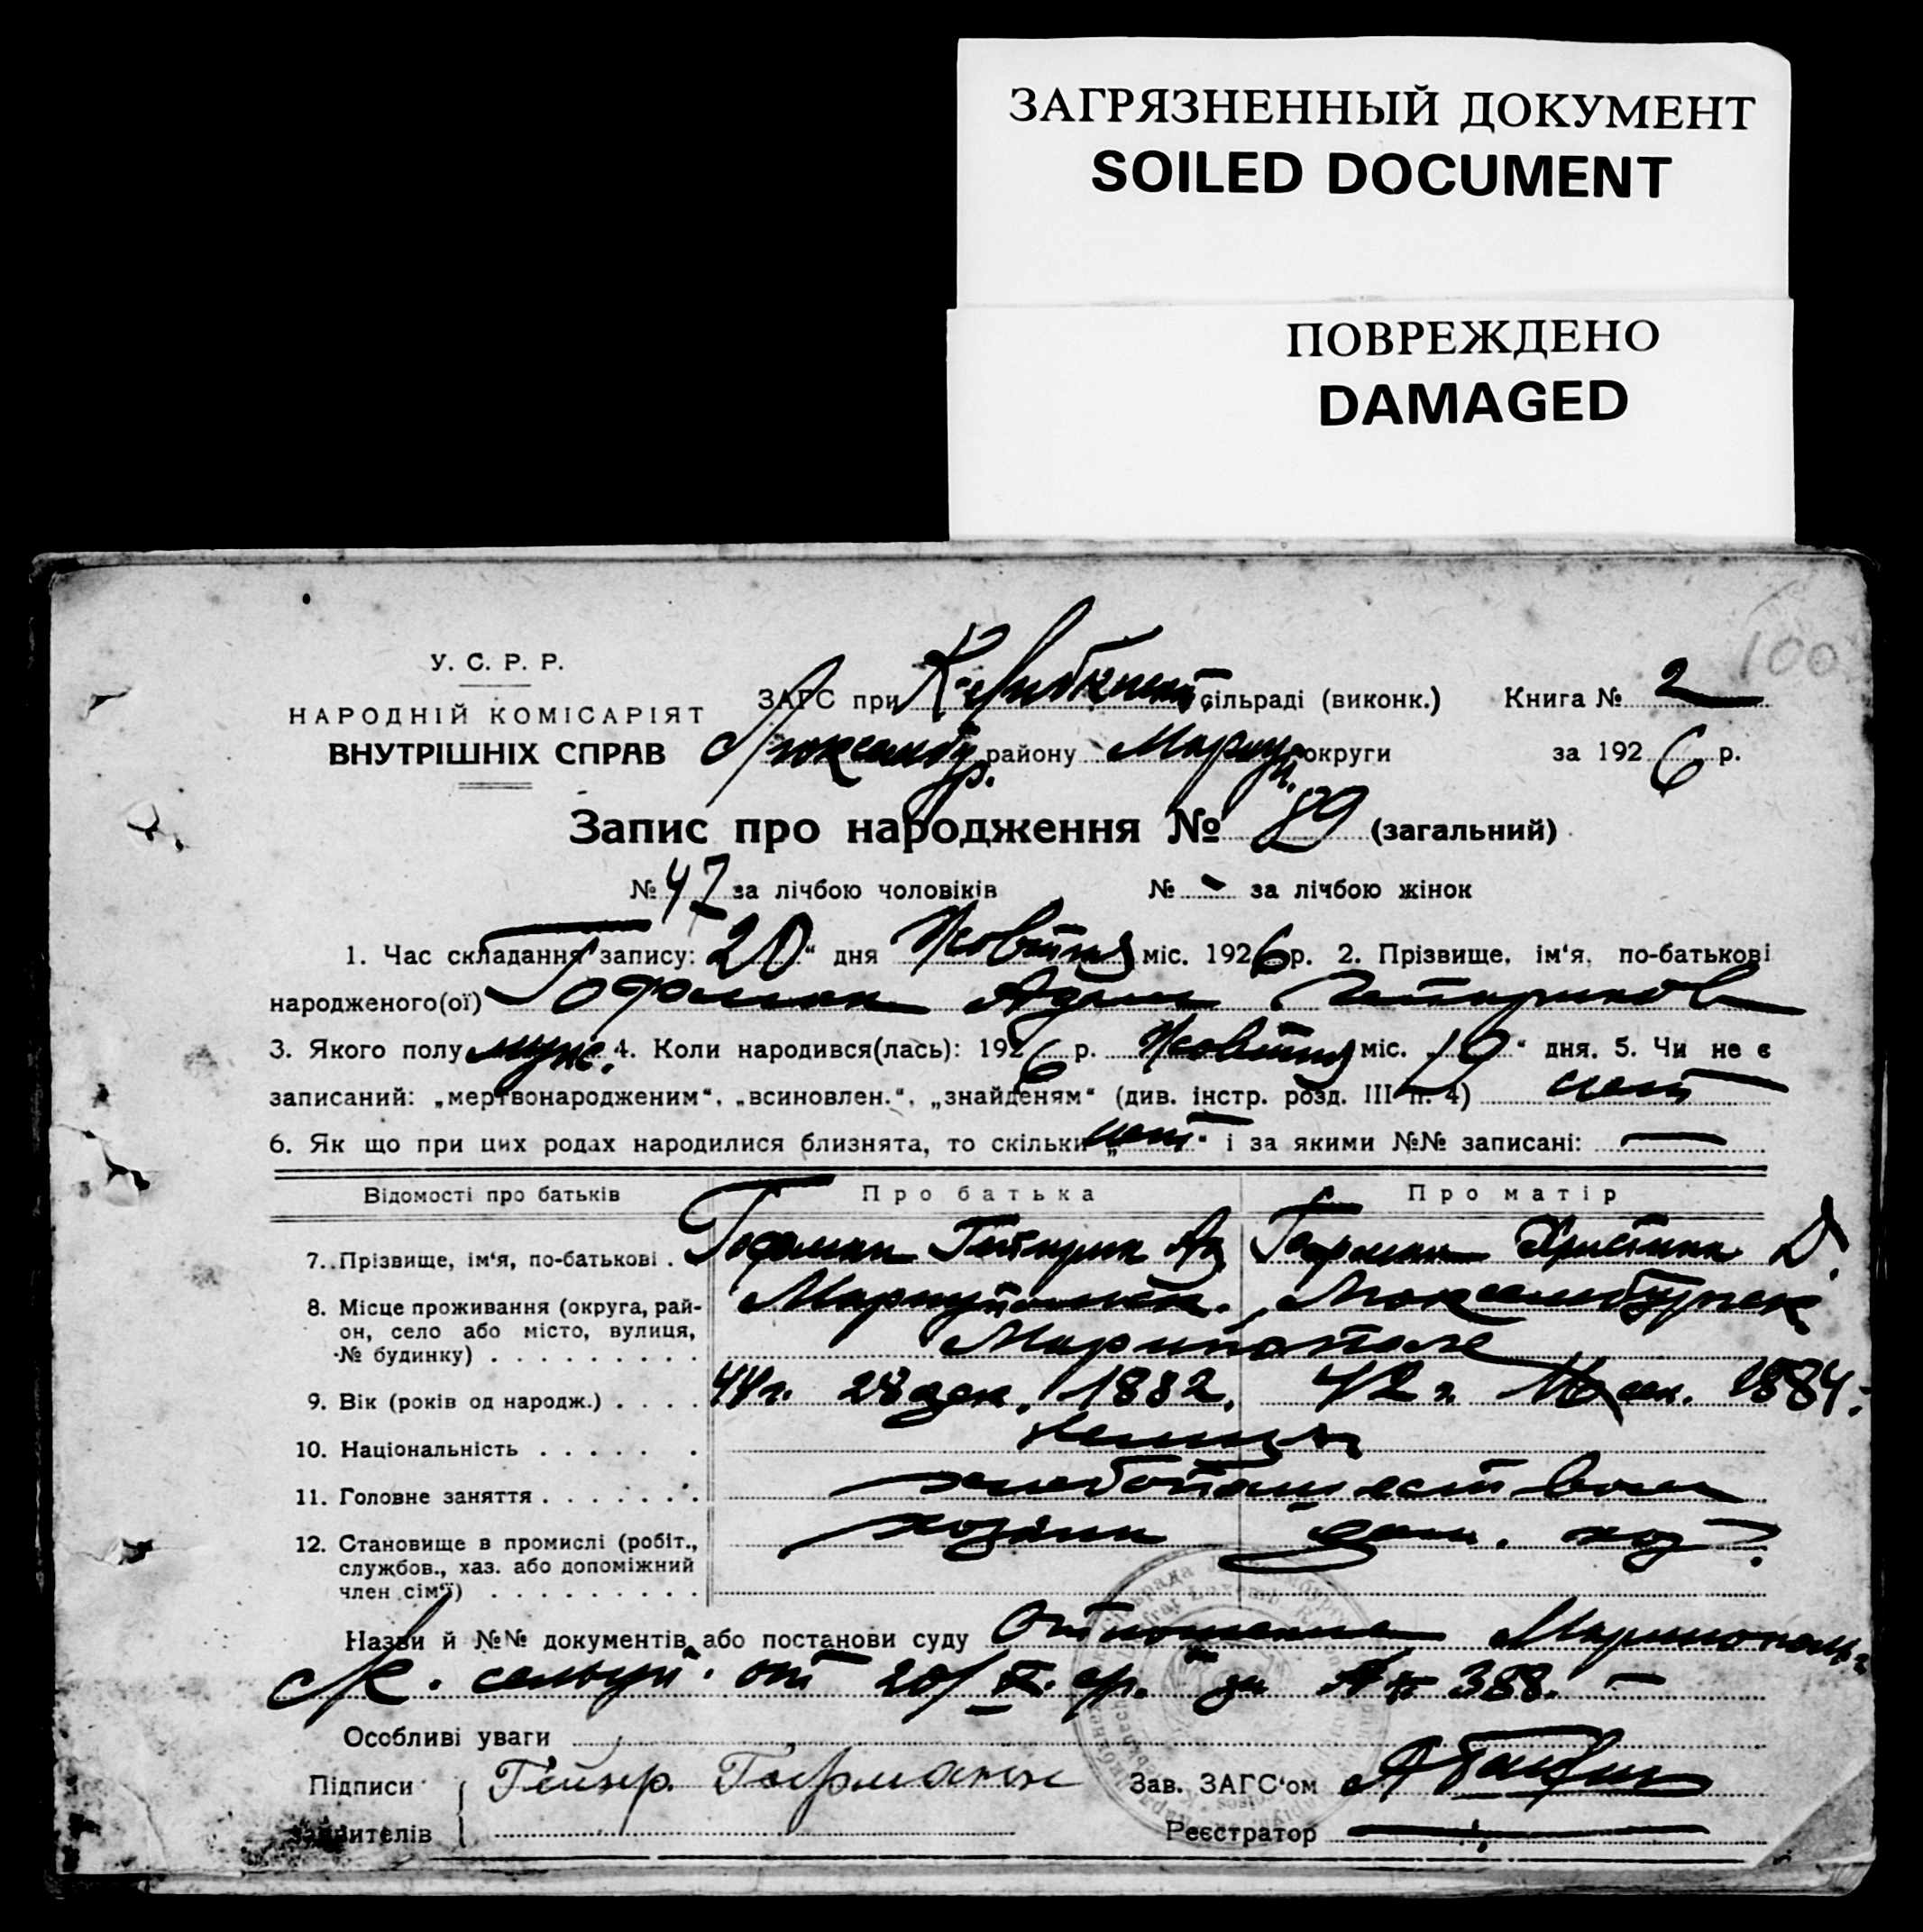 ЗАГРЯЗНЕННЫЙ ДОКУМЕНТ
SOILED DOCUMENT
ПОВРЕЖДЕНО
DAMAGED
100
У. С. Р. Р.
НАРОДНІЙ КОМІСАРІЯТ
ВНУТРІШНІХ СПРАВ
ЗАГС при сільраді (виконк.) Книга № 2
Люксембур. району Мариуп. округи за 1926 р.
Запис про народження № 89 (загальний)
№ 47 за лічбою чоловіків № - за лічбою жінок
1. Час складання запису: 20" дня Жовтня міс. 1926 р. 2. Прізвище, ім'я, по-батькові
народженого(ої) Гофман Адам
3. Якого полу муж. 4. Коли народився(лась): 1926 р. Жовтня міс. 10" дня. 5. Чи не є
записаний: „мертвонародженим", „всиновлен.", „знайденям" (див. інстр. розд. III п. 4) нет
6. Як що при цих родах народилися близнята, то скільки „нет" і за якими №№ записані: —
Відомості про батьків Про батька Про матір
7. Прізвище, ім'я, по-батькові . Гофман Гейнрих Ад Гофман Христина Д.
8. Місце проживання (округа, рай-
он, село або місто, вулиця,
№ будинку) . . . . . . . . .
Мариупольск. Люксембургск
Маринополь
9. Вік (років од народж.) . . . . 44 г. 28 дек. 1882. 42 г. 1884.
10. Національність . . . . . . немцы
11. Головне заняття . . . . . . . хлебопашеством
12. Становище в промислі (робіт.,
службов., хаз. або допоміжний
член сім'ї) . . . . . . . . .
хозяин дом. хоз
Назви й №№ документів або постанови суду Отношение Маринополь-
ск. от 20/X. ср. за № 388. —
Особливі уваги
Підписи Гейнр. Гофманн Зав. ЗАГС'ом
заявителів Реєстратор